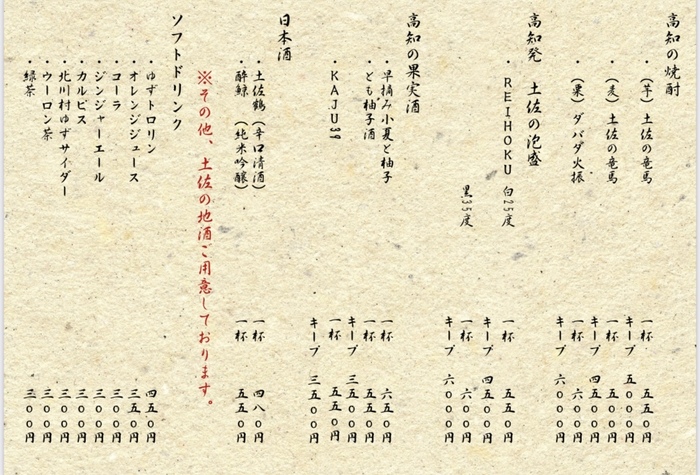 高知の焼酎
・(芋) 土佐の竜馬 一杯 五五〇円
キープ 五〇〇〇円
・(麦) 土佐の竜馬 一杯 五五〇円
キープ 四五〇〇円
・(栗) ダバダ火振 一杯 六〇〇円
キープ 六〇〇〇円
高知発 土佐の泡盛
・REIHOKU 白25度 一杯 五五〇円
キープ 四五〇〇円
黒35度 一杯 六〇〇円
キープ 六〇〇〇円
高知の果実酒
・早摘み小夏と柚子 一杯 六五〇円
・とも柚子酒 一杯 五五〇円
キープ 三五〇〇円
・KAJU39 一杯 五五〇円
キープ 三五〇〇円
日本酒
・土佐鶴(辛口清酒) 一杯 四八〇円
・酔鯨 (純米吟醸) 一杯 五五〇円
※その他、土佐の地酒ご用意しております。
ソフトドリンク
・ゆずトロリン 四五〇円
・オレンジジュース 三五〇円
・コーラ 三〇〇円
・ジンジャーエール 三〇〇円
・カルピス 三〇〇円
・北川村ゆずサイダー 三〇〇円
・ウーロン茶 三〇〇円
・緑茶 三〇〇円